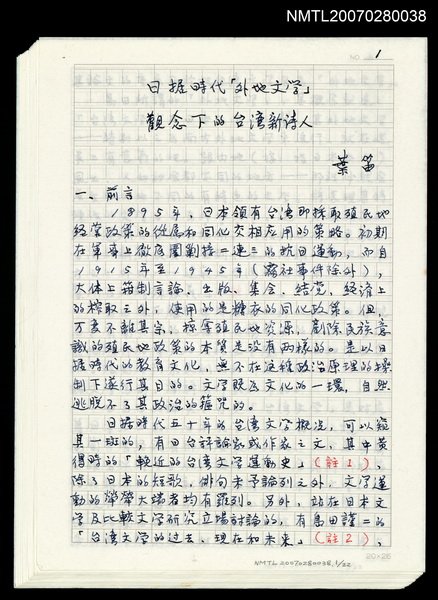 NMTL20070280038
NO. 1
日据時代「外地文学」
觀念下的台湾新詩人
葉笛
一、前言
1895年,日本領有台湾即採取殖民地
經営政策的從属和同化交相应用的策略。初期
在軍事上徹底圍剿接二連三的抗日運動,而自
1915年至1945年(霧社事件除外),
大体上箝制言論、出版、集会、結党,經濟上
的榨取之外,使用的是糖衣的同化政策。但,
万変不離其宗,掠奪殖民地资源,剷除民族意
識的殖民地政策的本質是没有两樣的。是以日
据時代的教育文化,無不在這種政治原理的操
制下遂行其目的。文学既为文化的一環,自然
逃脱不了其政治的箍咒的。
日据時代五十年的台湾文学概况,可以窺
其一斑的,有日台評論家或作家之文,其中黄
得時的「輓近的台湾文学運動史」(註1),
除了日本的短歌,俳句未予論列之外,文学運
動的犖犖大端者均有羅列。另外,站在日本文
学及比較文学研究立場討論的,有島田謹二的
「台湾文学的过去、現在和未來」(註2),
20×25
NMTL20070280038, 1/22